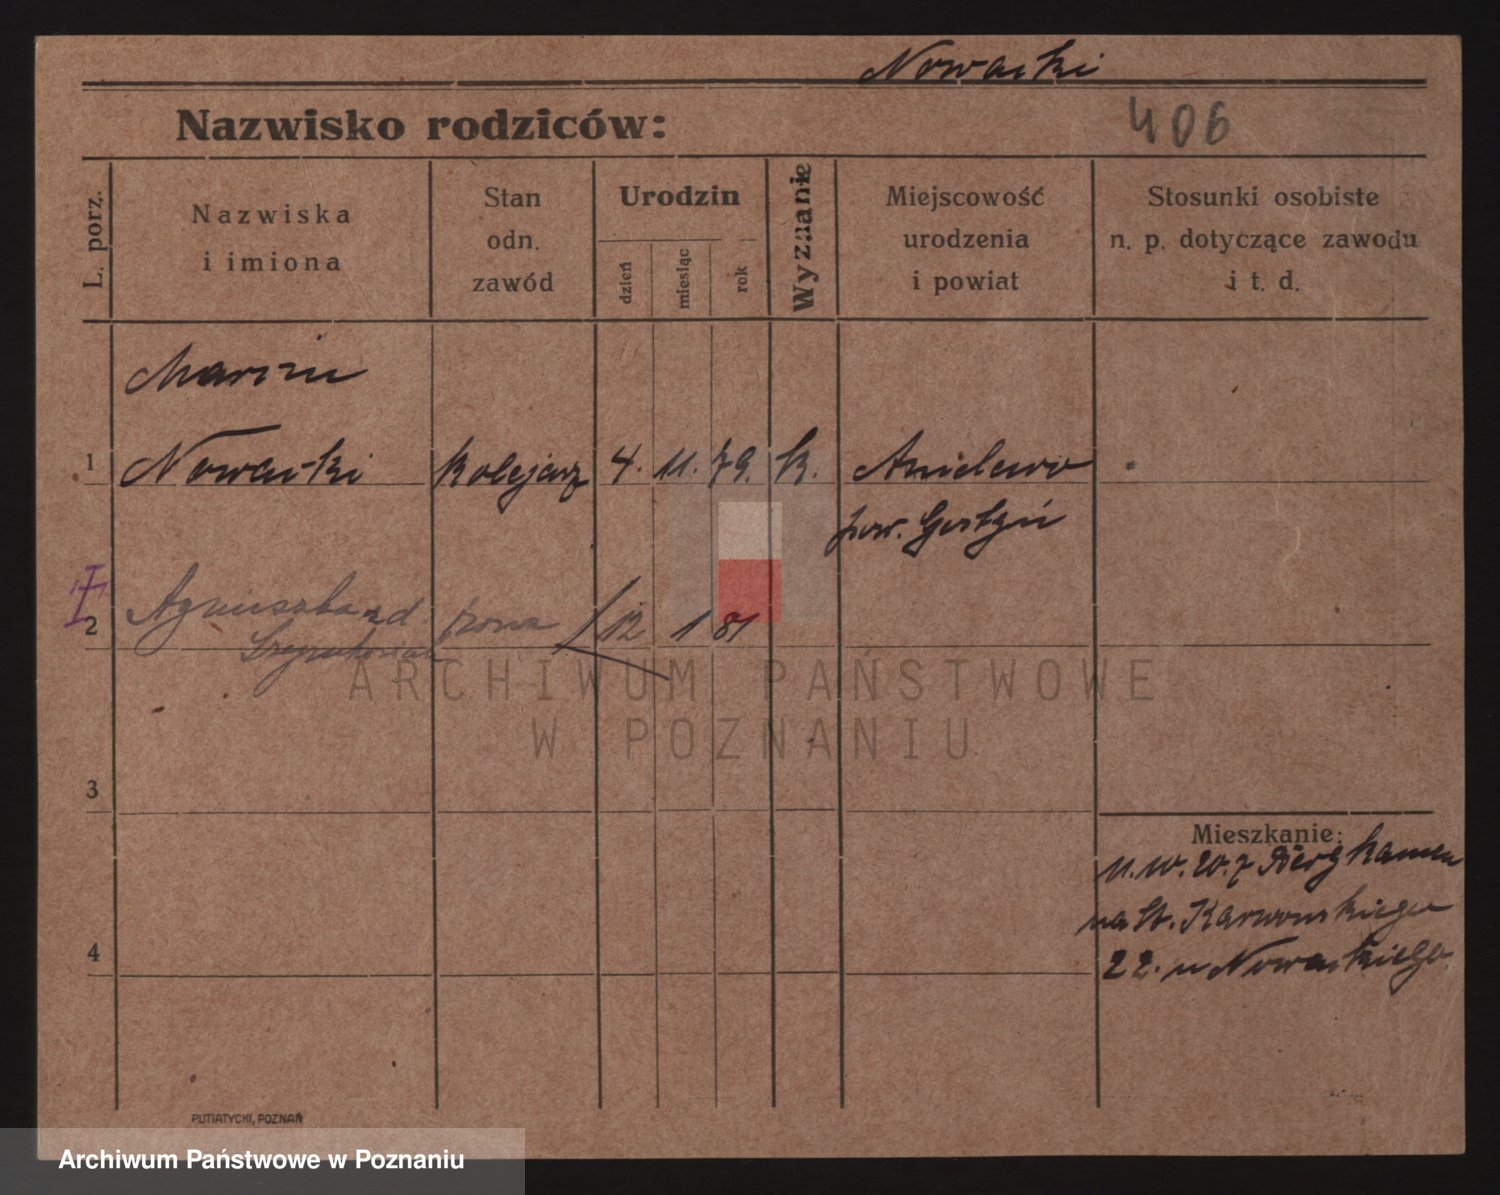 Nowacki
Nazwisko rodziców:
406
L. porz.
Nazwiska
i imiona
Stan
odn.
zawód
Urodzin
dzień
miesiąc
rok
Wyznanie
Miejscowość
urodzenia
i powiat
Stosunki osobiste
n. p. dotyczące zawodu
i t. d.
Marcin
1 Nowacki kolejarz 4. 11. 79. k.
pow. Gostyń
2 Agnieszka zd. żona 12 1 81
ARCHIWUM PAŃSTWOWE
W POZNANIU
3
Mieszkanie:
11. 10. 20. z Bergkamen
na St. Karwowskiego
4
22. u Nowackiego
PUTIATYCKI, POZNAŃ
Archiwum Państwowe w Poznaniu